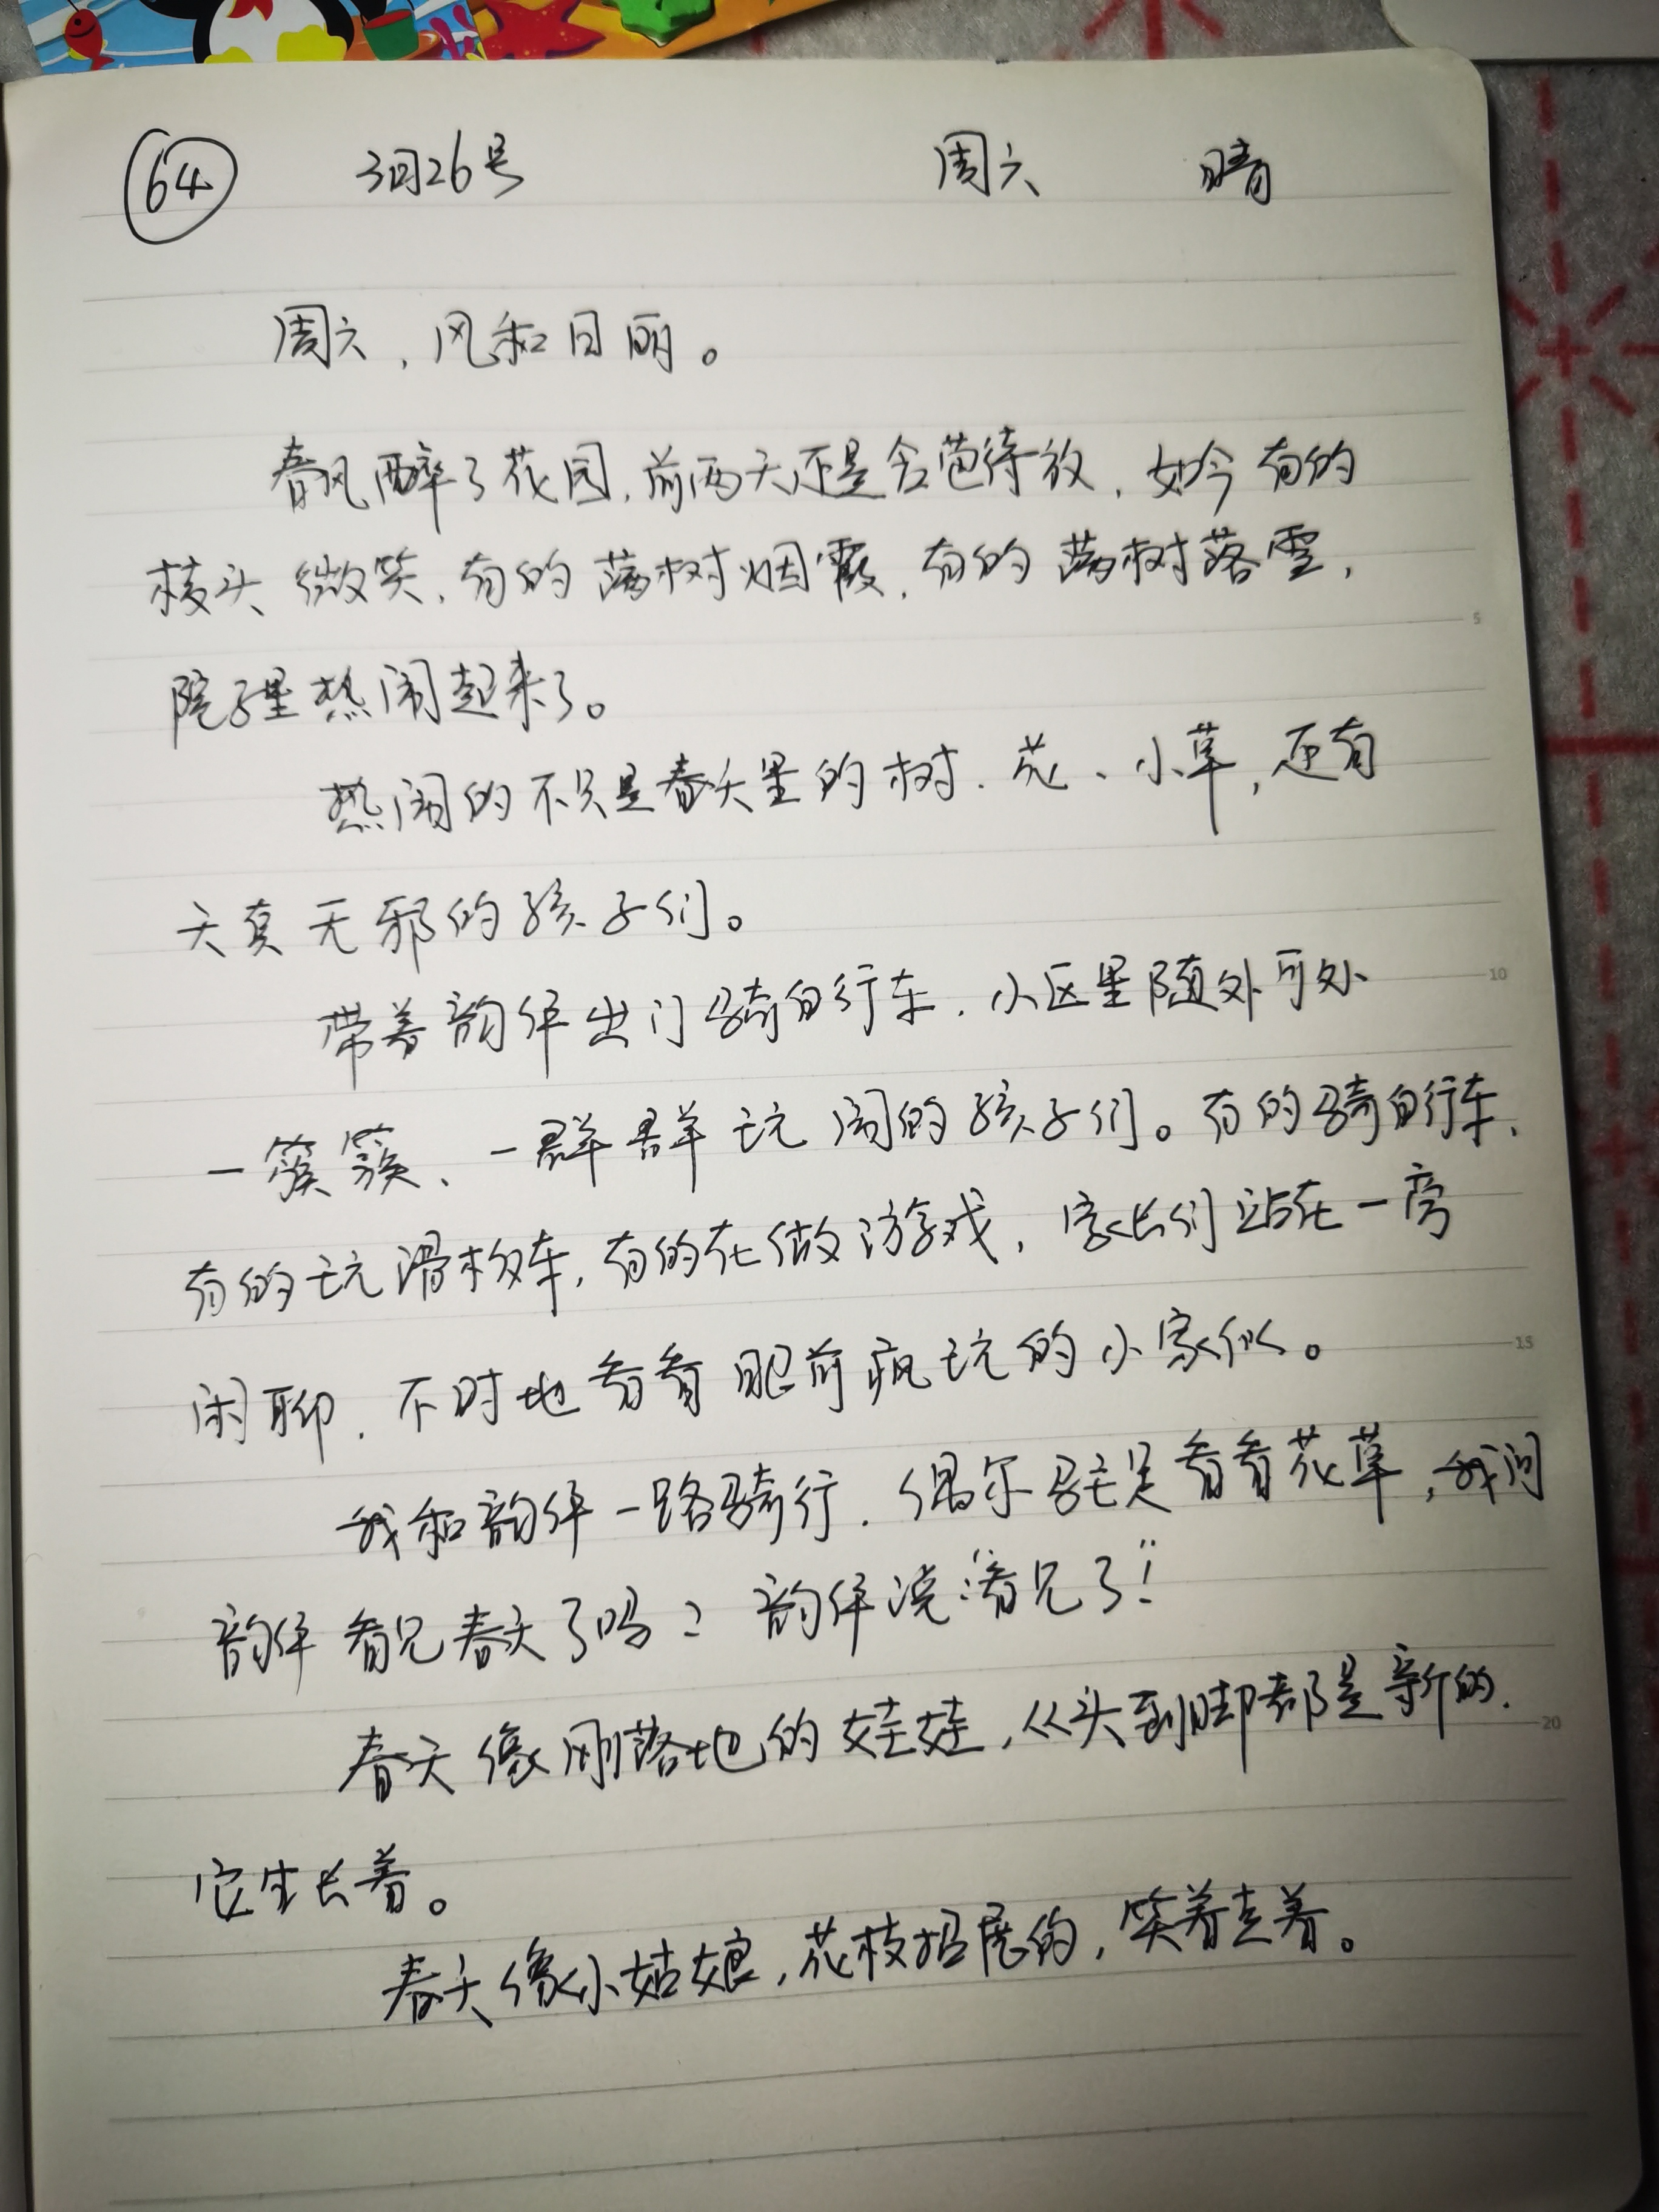 64 3月26号 周六 晴
周六,风和日丽。
春风醉了花园,前两天还是含苞待放,如今有的
枝头微笑,有的满树烟霞,有的满树落雪,
院子里热闹起来了。
热闹的不只是春天里的树、花、小草,还有
5
天真无邪的孩子们。
带着韵伊出门骑自行车,小区里随处可处
10
一簇簇、一群群玩闹的孩子们。有的骑自行车,
有的玩滑板车,有的在做游戏,家长们站在一旁
闲聊,不时地看看眼前疯玩的小家伙。
15
我和韵伊一路骑行,偶尔驻足看看花草,我问
韵伊看见春天了吗?韵伊说:“看见了!”
春天像刚落地的娃娃,从头到脚都是新的,
20
它生长着。
春天像小姑娘,花枝招展的,笑着走着。